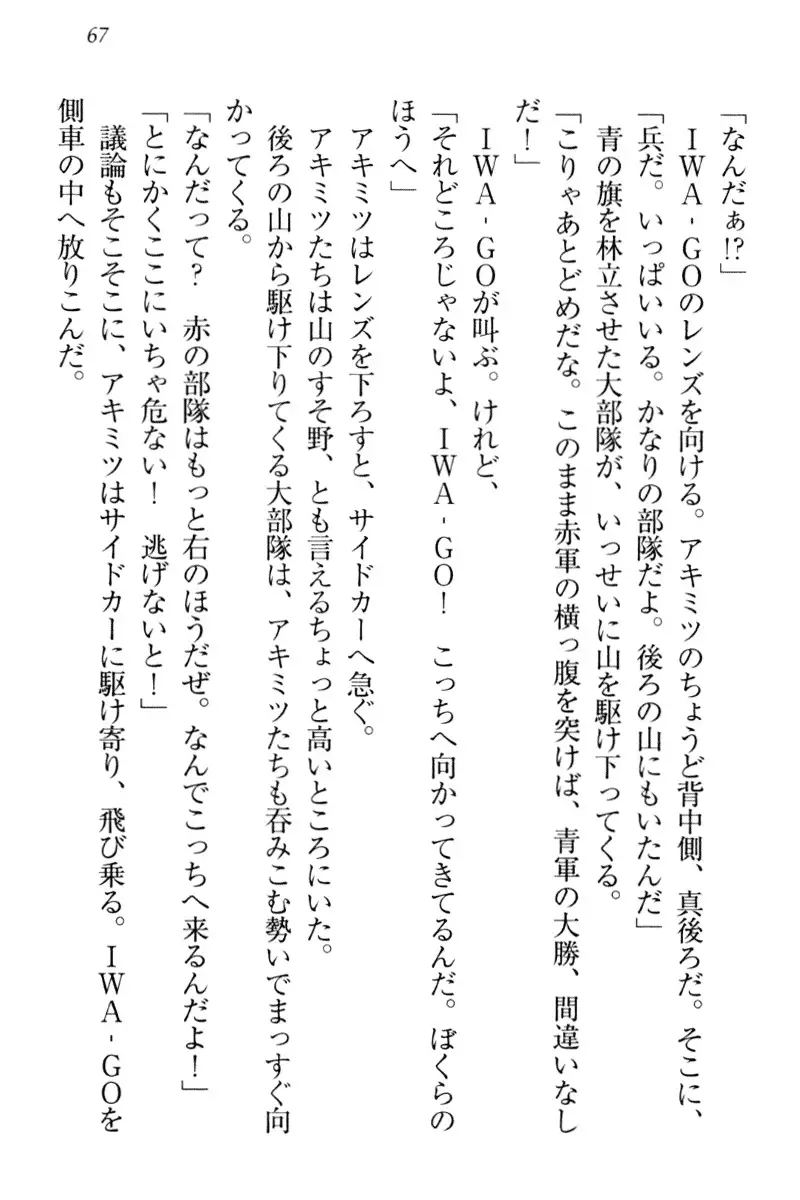 67
「なんだぁ!?」
　ＩＷＡ‐ＧＯのレンズを向ける。アキミツのちょうど背中側、真後ろだ。そこに、
「兵だ。いっぱいいる。かなりの部隊だよ。後ろの山にもいたんだ」
　青の旗を林立させた大部隊が、いっせいに山を駆け下ってくる。
「こりゃあとどめだな。このまま赤軍の横っ腹を突けば、青軍の大勝、間違いなし
だ！」
　ＩＷＡ‐ＧＯが叫ぶ。けれど、
「それどころじゃないよ、ＩＷＡ‐ＧＯ！　こっちへ向かってきてるんだ。ぼくらの
ほうへ」
　アキミツはレンズを下ろすと、サイドカーへ急ぐ。
　アキミツたちは山のすそ野、とも言えるちょっと高いところにいた。
　後ろの山から駆け下りてくる大部隊は、アキミツたちも呑みこむ勢いでまっすぐ向
かってくる。
「なんだって？　赤の部隊はもっと右のほうだぜ。なんでこっちへ来るんだよ！」
「とにかくここにいちゃ危ない！　逃げないと！」
　議論もそこそこに、アキミツはサイドカーに駆け寄り、飛び乗る。ＩＷＡ‐ＧＯを
側車の中へ放りこんだ。